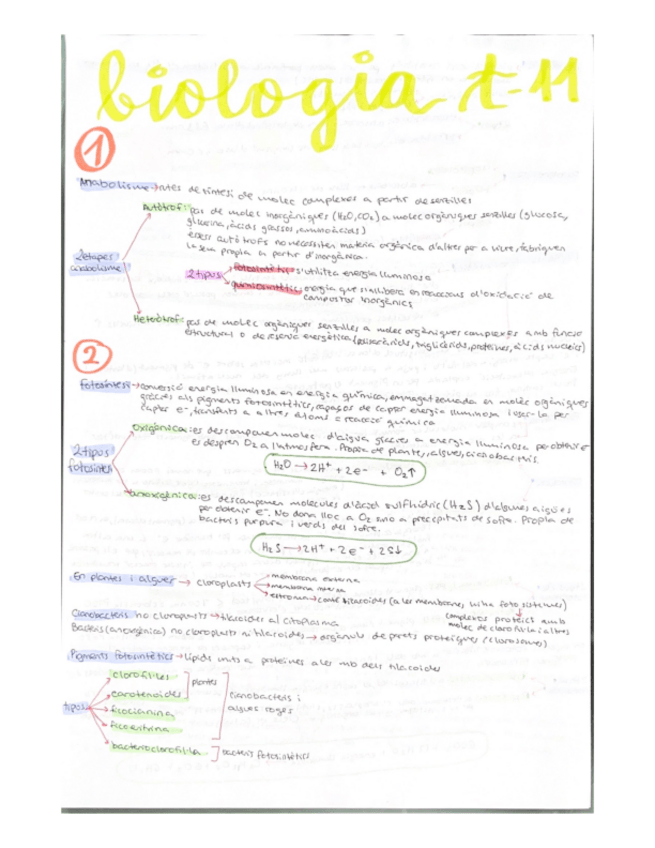 biologia t-11
1
Anabolisme→rutes de síntesi de molec complexes a partir de senzilles
Autòtrof: pas de molec inorgàniques (H2O, CO2) a molec orgàniques senzilles (glucosa,
glicerina, àcids grassos, aminoàcids)
éssers autòtrofs no necessiten matèria orgànica d'altres per a viure, fabriquen
la seva pròpia a partir d'inorgànica.
2 etapes
anabolisme
2 tipus
fotosintètic→s'utilitza energia lluminosa
quimiosintètic: energia que s'allibera en reaccions d'oxidació de
compostos inorgànics
Heteròtrof: pas de molec orgàniques senzilles a molec orgàniques complexes amb funció
estructural o de reserva energètica (polisacàrids, triglicèrids, proteïnes, àcids nucleics)
2
Fotosíntesi→conversió energia lluminosa en energia química, emmagatzemada en molec orgàniques
gràcies als pigments fotosintètics, capaços de captar energia lluminosa i usar-la per
captar e-, transferits a altres àtoms → reacció química
Oxigènica: es descomponen molec. d'aigua gràcies a energia lluminosa per obtenir e-
es desprèn O2 a l'atmosfera. Pròpia de plantes, algues, cianobacteris.
2 tipus
fotosíntesi
H2O → 2H+ + 2e- + O2↑
anoxigènica: es descomponen molècules d'àcid sulfhídric (H2S) d'algunes aigües
per obtenir e-. No dona lloc a O2 sinó a precipitats de sofre. Pròpia de
bacteris porpura i verds del sofre.
H2S → 2H+ + 2e- + 2S↓
En plantes i algues → cloroplasts
membrana externa
membrana interna
estroma→conté tilacoides (a les membranes, hi ha fotosistemes)
complexos proteics amb
molec de clorofil·la i altres
Cianobacteris no cloroplasts→tilacoides al citoplasma
Bacteris (anoxigènica) no cloroplasts ni tilacoides→orgànuls de parets proteiques (clorosomes)
Pigments fotosintètics→lípids units a proteïnes a les mb dels tilacoides
tipus
clorofil·les
carotenoides
plantes
ficocianina
ficoeritrina
cianobacteris i
algues roges
bacterioclorofil·la
bacteris fotosintètics